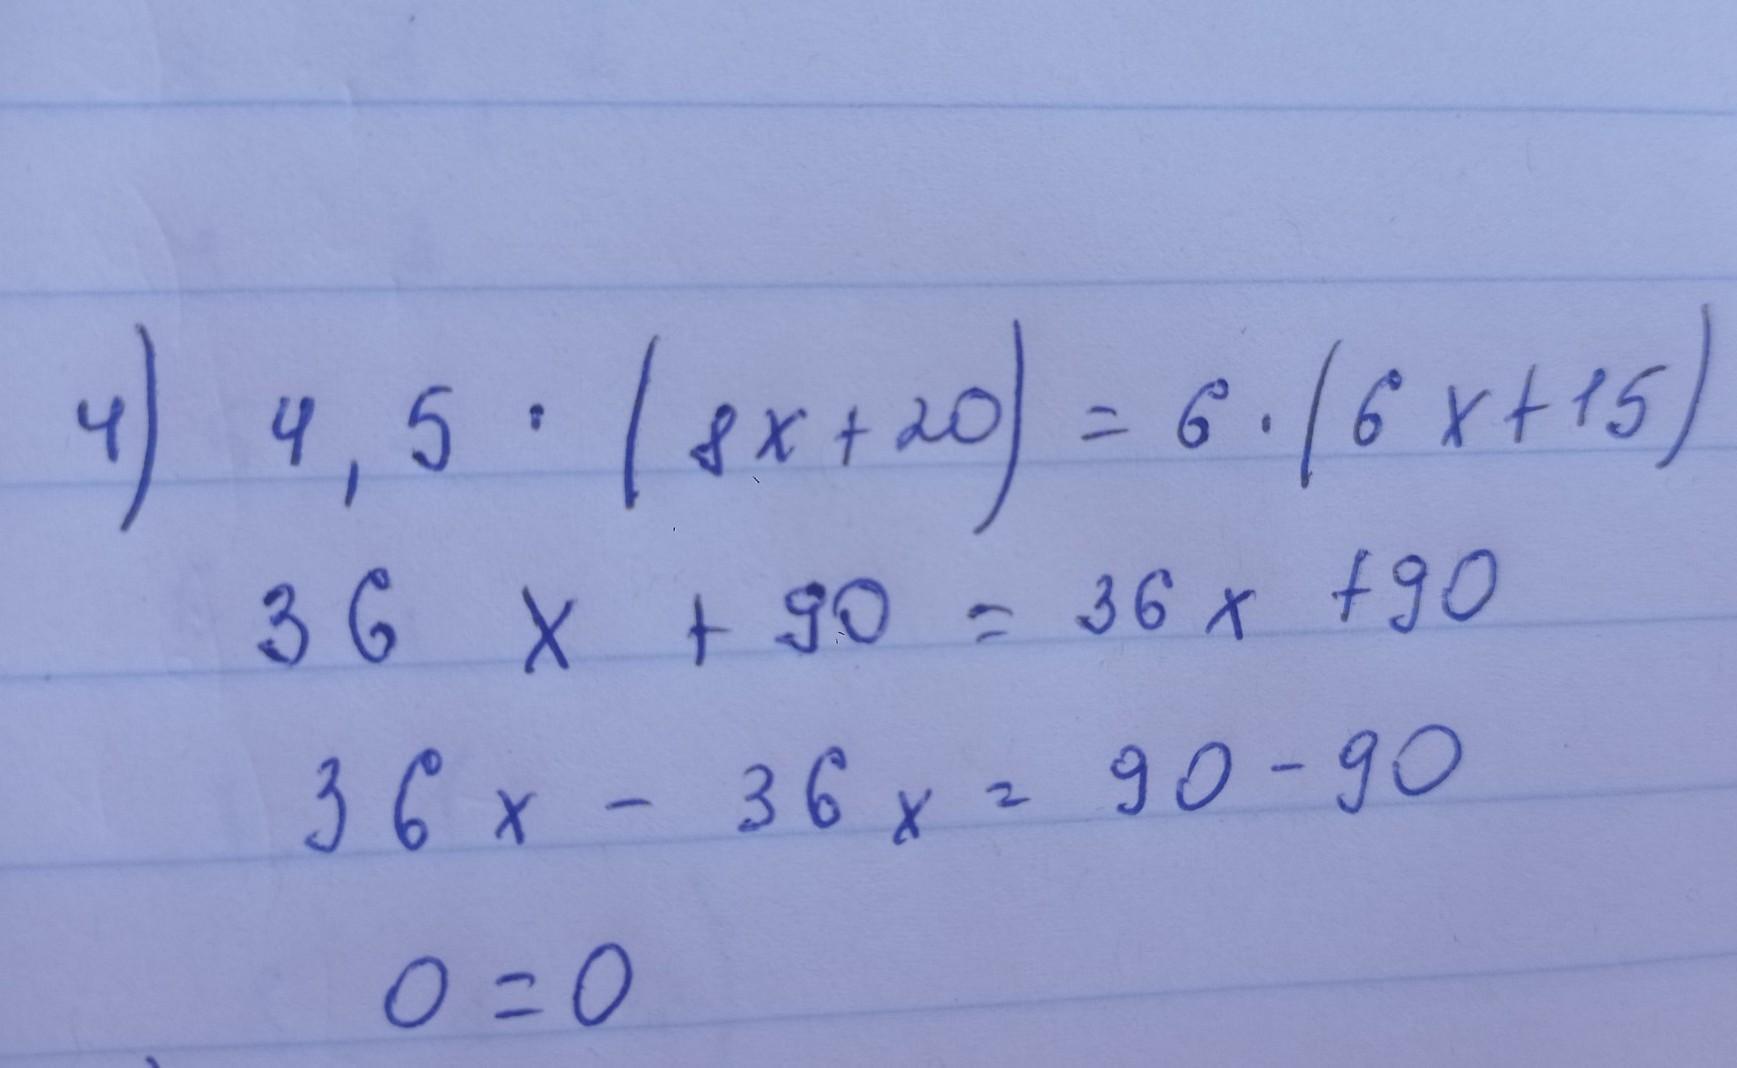 4) 4,5 · (8x+20) = 6 · (6x+15)
36 x + 90 = 36x +90
36x - 36x = 90-90
0 = 0